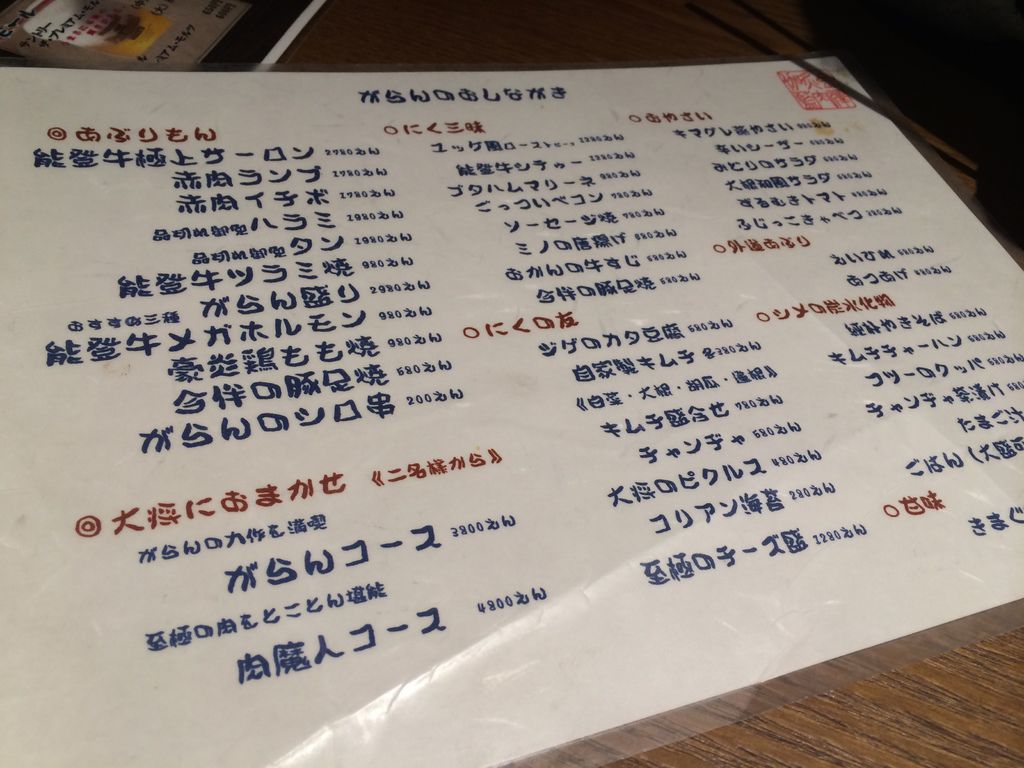 がらんのおしながき
◎あぶりもん
能登牛極上サーロン 2780えん
赤肉ランプ 1780えん
赤肉イチボ 1780えん
品切れ御免 ハラミ 1980えん
品切れ御免 タン 1980えん
能登牛ツラミ焼 980えん
がらん盛り 2980えん
おすすめ三種
能登牛メガホルモン 980えん
豪炎鶏もも焼 980えん
今伴の豚足焼 580えん
がらんのシロ串 200えん
◎大将におまかせ 《二名様から》
がらんの九作を満喫
がらんコース 3800えん
至極の肉をとことん堪能
肉魔人コース 4800えん
○にく三昧
ユッケ風ローストビーフ 1280えん
能登牛シチュー 1280えん
ブタハムマリーネ 980えん
ごっついベコン 780えん
ソーセージ焼 780えん
ミノの唐揚げ 680えん
おかんの牛すじ 580えん
今伴の豚足焼 580えん
○にくの友
ジゲのカタ豆腐 580えん
自家製キムチ 各380えん
《白菜・大根・胡瓜・蓮根》
キムチ盛合せ 780えん
チャンヂャ 580えん
大将のピクルス 480えん
コリアン海苔 280えん
至極のチーズ盛 1280えん
○おやさい
キマグレ菜やさい
辛いシーザー
みどりのサラダ
大根和風サラダ
まるむきトマト
ふじっこきゃべつ
○外道あぶり
えいひれ
あつあげ
○シメの炭水化物
純粋やきそば 680えん
キムチチャーハン
コツーのクッパ
チャンヂャ茶漬け
たまご汁
ごはん(大盛可
○甘味
きまぐ